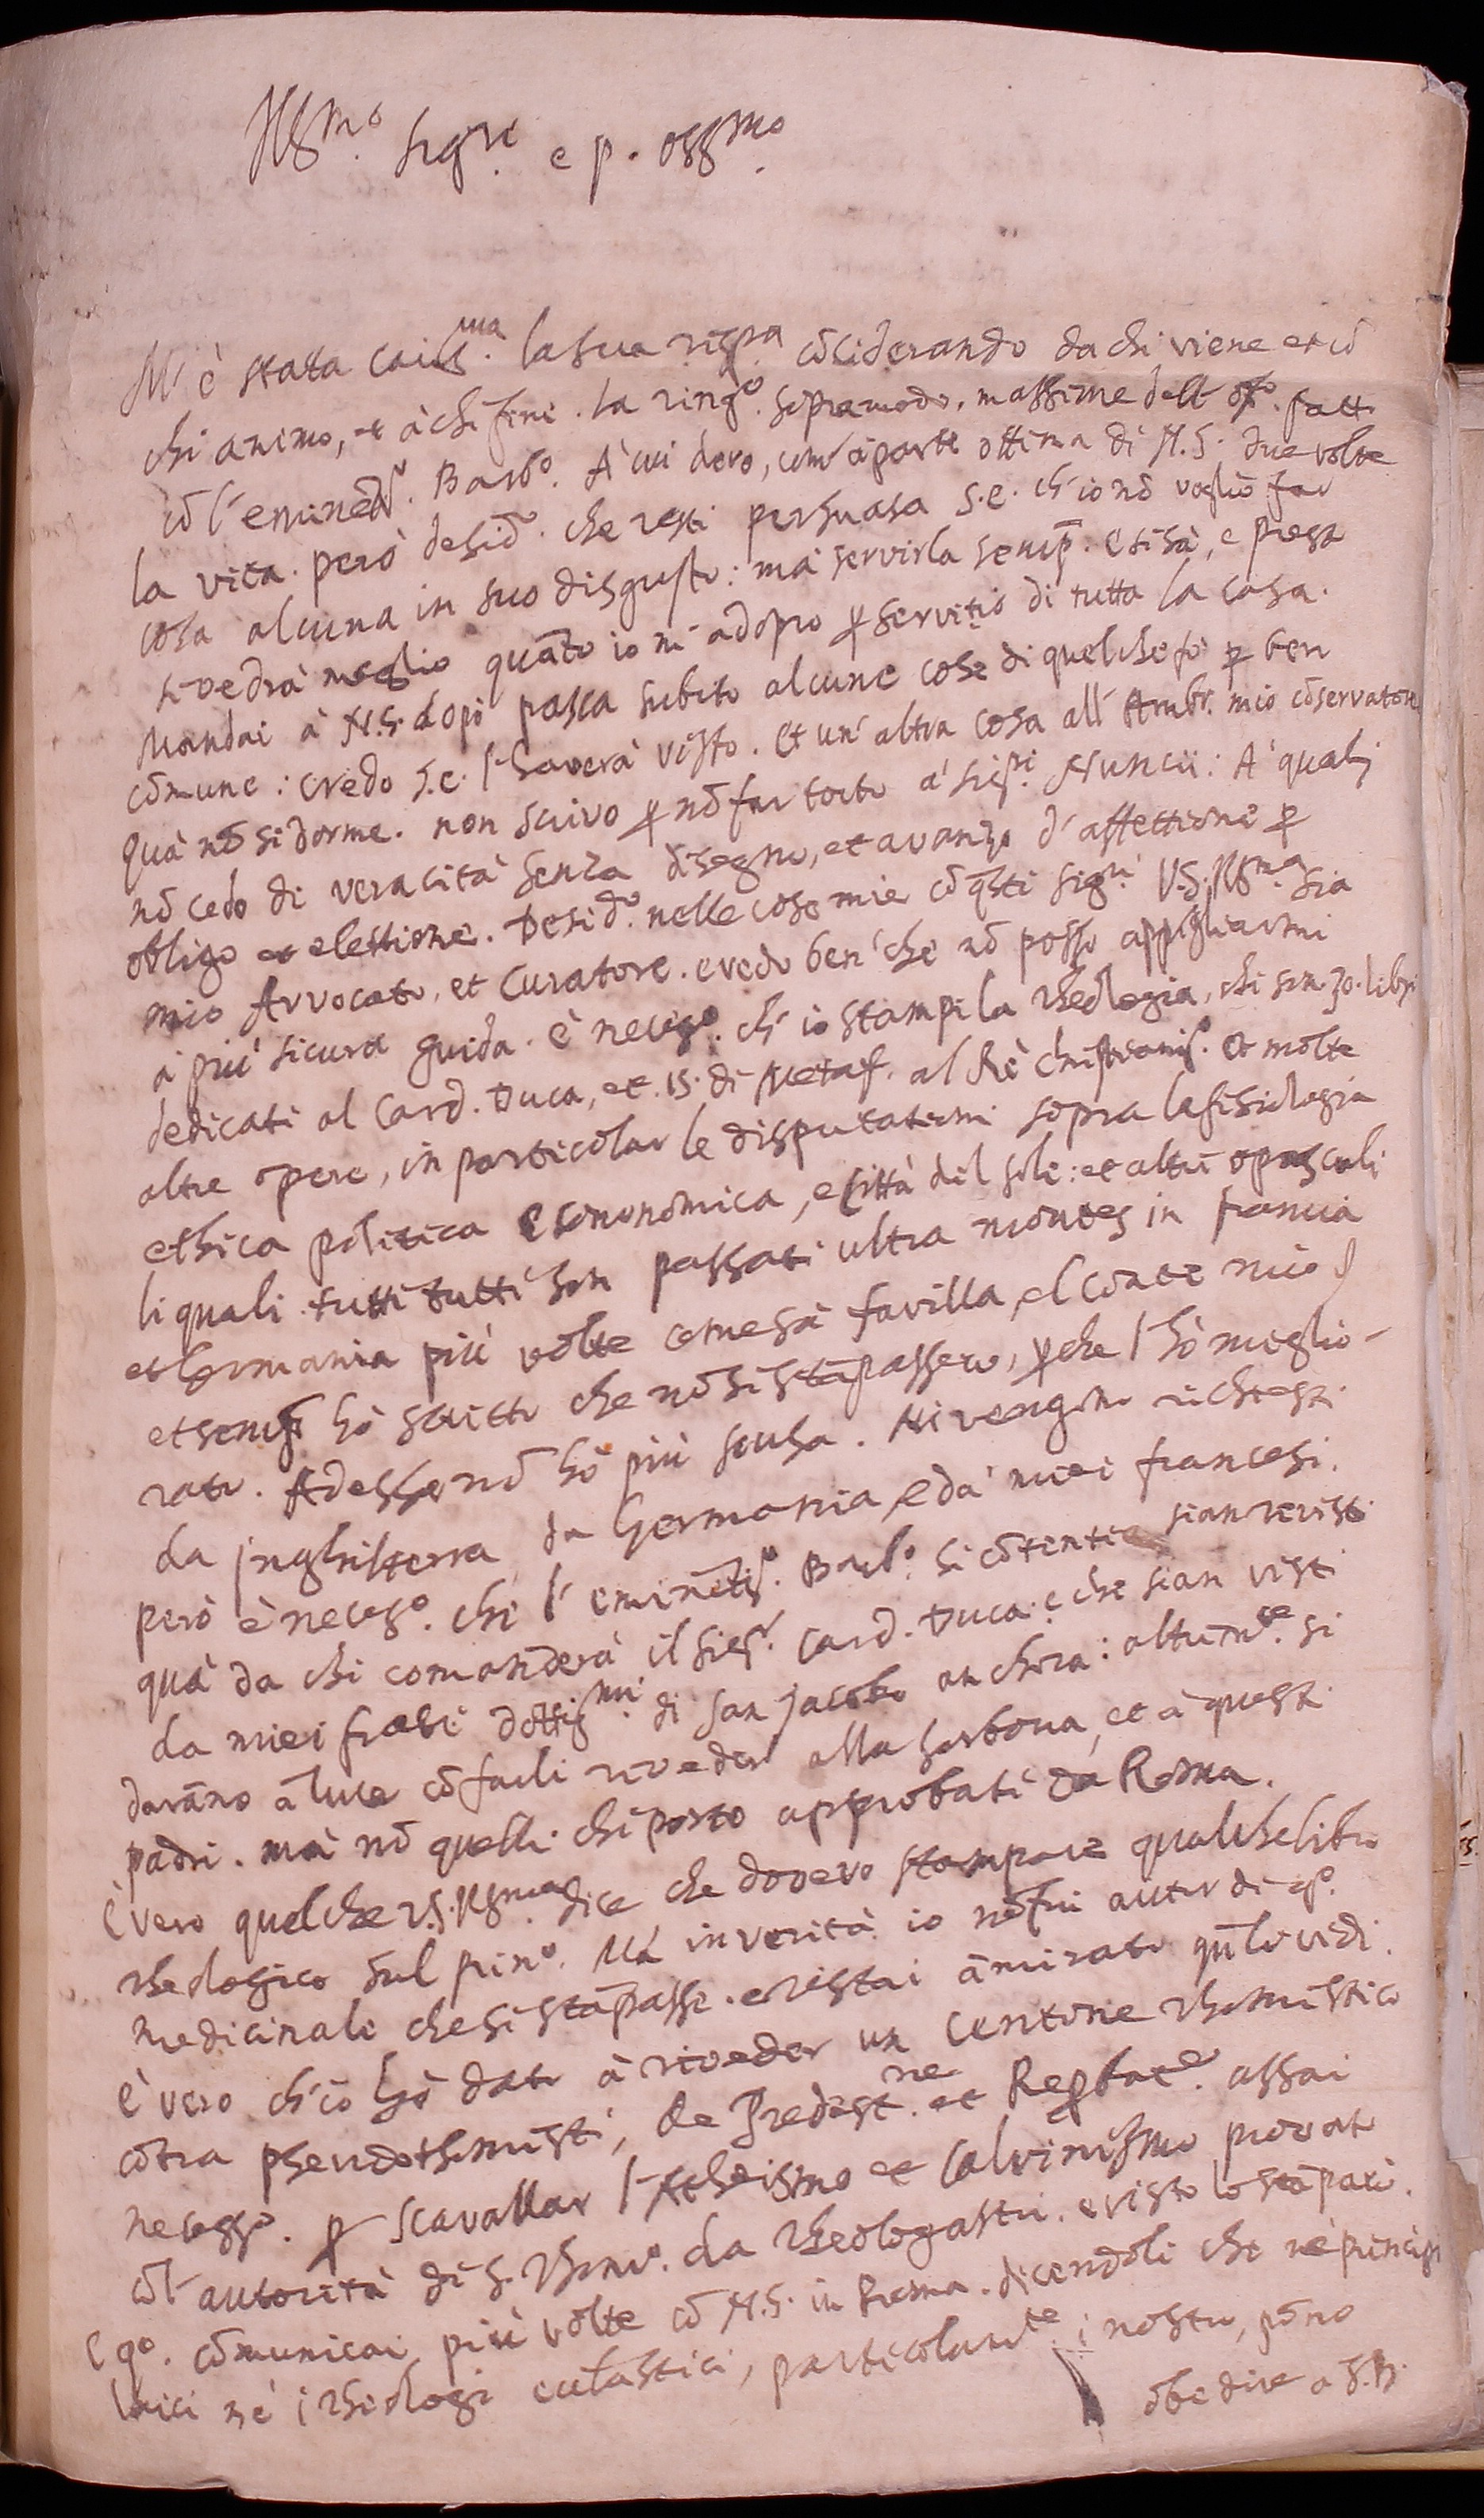 Ill.mo sig.re e p. oss.mo
M'è stata cariss.ma la sua risp.ta cōsiderando da chi viene et cō
chi animo, et à chi fine. la ring.o sopramodo, massime dell' off.o fatto
cō l'eminēt.o Barb.o. A cui devo, com' à parte ottima di N.S. due volte
la vita. però desid.o che resti persuasa S.E. ch' io nō voglio far
cosa alcuna in suo disgusto: mà servirla semp. e si sà, e presto
si vedrà meglio quāto io m' adopro ꝑ servitio di tutta la casa.
Mandai à N.S. dopò pasca subito alcune cose di quel che fo ꝑ ben
cōmune: credo S.E. l'haverà visto. Et un' altra cosa all' Ambr. mio cōservatore
quà nō si dorme. non scrivo ꝑ nō far torto a' sig.ri Nuncii: A' quali
nō cedo di veracità senza disegno, et avanzo d' affettione ꝑ
obligo et elettione. Desid.o nelle cose mie cō q̄sti sig.ri V.S. Ill.ma sia
mio Avvocato, et Curatore. e vedo ben' che nō posso appigliarmi
a più sicura guida. è necess.o ch' io stampi la theologia, chi son 30. libri
dedicati al Card. Duca, et 15. di Metaf. al Rè christianiss.o. Et molte
altre opere, in particolar le disputationi sopra la fisiologia
ethica politica economica, e città del sole: et altri opusculi
li quali tutti tutti son passati ultra montes in francia
et Germania più volte come sà favilla, el conte mio
et semp hò scritto che nō si stāpassero, ꝑche l'hò miglio-
rato. Adesso nō hò più scusa. Mi vengono richiesti
da Inghilterra, da Germania, e dà miei francesi.
però è necess.o chi l' eminētiss.o Barb.o si cōtenti sian revisti
quà da chi comanderà il sig.r Card. Duca: e che sian visti
da miei frati dottiss.mi di san Jacobo anchora: altrim.te si
darāno à luce cō farli riveder alla sorbona, et à questi
padri. mà nō quelli chi porto approbati da Roma.
È vero quel che V.S. Ill.ma dice che dovevo stampare qualche libro
theologico sul prin.o. Mà in verità io nō fui autor di q.o
medicinale che si stāpasse. e restai āmirato qn̄ lo vidi.
È vero ch' io hò dato à riveder un Centone thomistico
cōtra pseudothomisti, de Predest.ne et Reꝓbat.e assai
necess.o ꝑ scavallar l'Atheismo et Calvinismo provato
cōl' autorità di S. Thom.o da theologastri. e visto lo stāparò.
E q.o cōmunicai più volte cō N.S. in Roma. dicendoli che nè principi
laici nè i theologi ecclastici, particolarm.te i nostri, pōno
obedire a S.B.